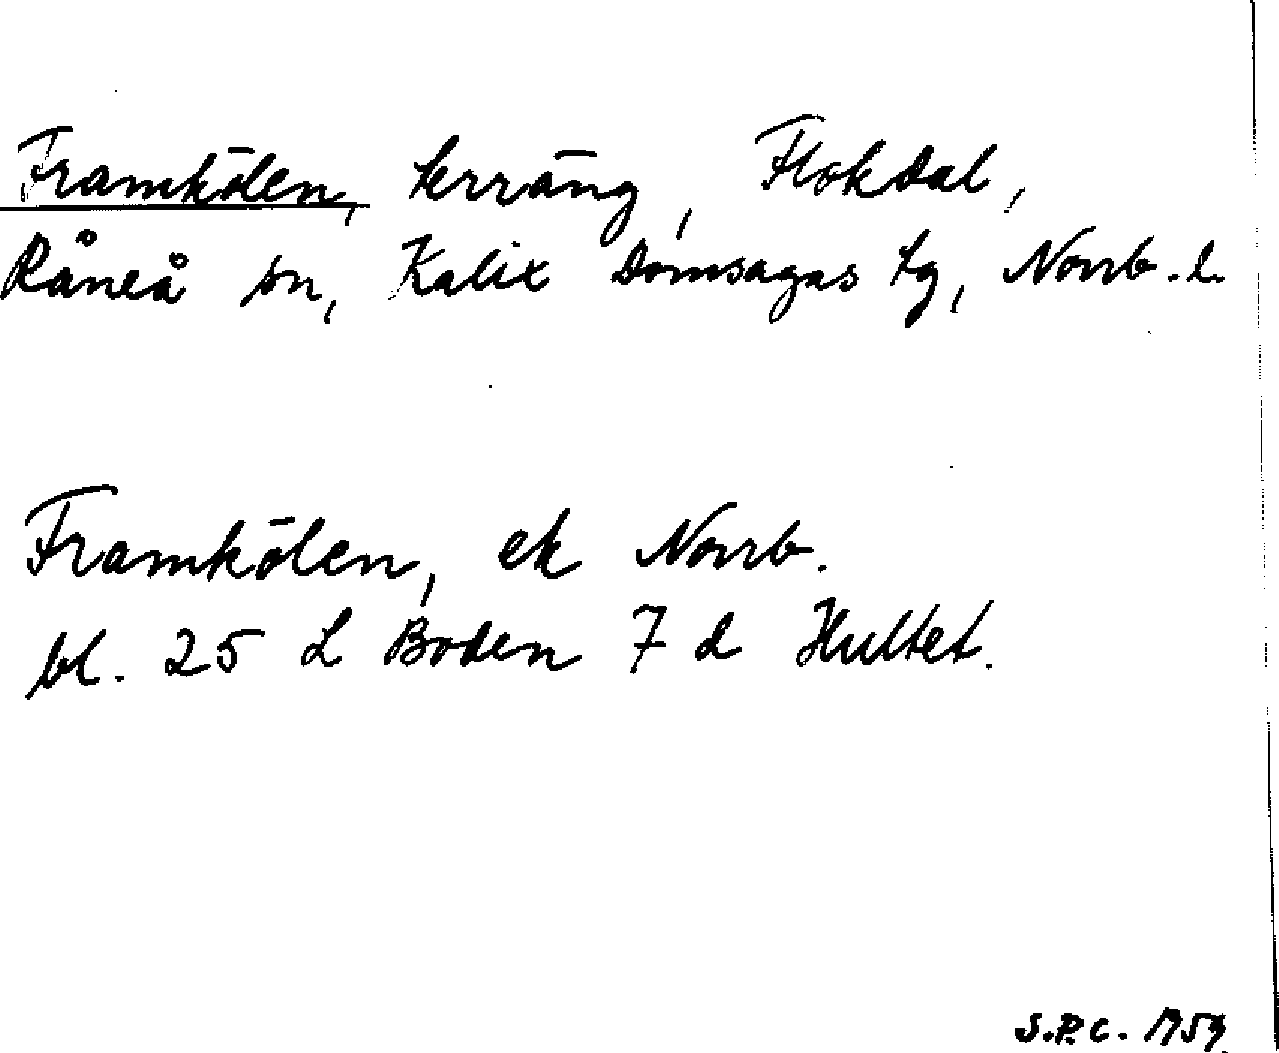 Framkölen, terräng, Flokdal,
Råneå sn, Kalix Domsagas tg, Norrb. l.
Framkölen, ek Norrb.
bl. 25 L Boden 7 d Hultet.
S.P.C.